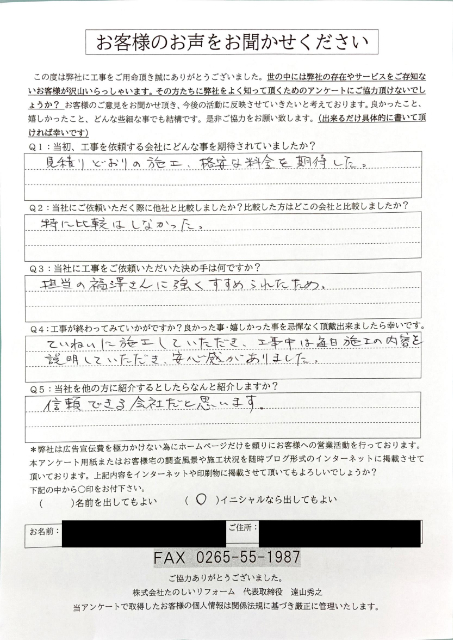 お客様のお声をお聞かせください
この度は弊社に工事をご用命頂き誠にありがとうございました。世の中には弊社の存在やサービスをご存知な
いお客様が沢山いらっしゃいます。その方たちに弊社をよく知って頂くためのアンケートにご協力頂けないでし
ょうか？ お客様のご意見をお聞かせ頂き、今後の活動に反映させていきたいと考えております。良かったこと、
嬉しかったこと、どんな些細な事でも結構です。是非ご協力をお願い致します。（出来るだけ具体的に書いて頂
ければ幸いです）
Q1：当初、工事を依頼する会社にどんな事を期待されていましたか？
見積りどおりの施工、格安な料金を期待した。
Q2：当社にご依頼いただく際に他社と比較しましたか？比較した方はどこの会社と比較しましたか？
特に比較はしなかった。
Q3：当社に工事をご依頼いただいた決め手は何ですか？
担当の福澤さんに強くすすめられたため。
Q4：工事が終わってみていかがですか？良かった事・嬉しかった事を忌憚なく頂戴出来ましたら幸いです。
ていねいに施工していただき、工事中は毎日施工の内容を
説明していただき、安心感がありました。
Q5：当社を他の方に紹介するとしたらなんと紹介しますか？
信頼できる会社だと思います。
＊弊社は広告宣伝費を極力かけない為にホームページだけを頼りにお客様への営業活動を行っております。
本アンケート用紙またはお客様宅の調査風景や施工状況を随時ブログ形式のインターネットに掲載させて
頂いております。上記内容をインターネットや印刷物に掲載させて頂いてもよろしいでしょうか？
下記の中から○印をお付下さい。
（　　）名前を出してもよい　（ ○ ）イニシャルなら出してもよい
お名前： ご住所：
FAX 0265-55-1987
ご協力ありがとうございました。
株式会社たのしいリフォーム　代表取締役　遠山秀之
当アンケートで取得したお客様の個人情報は関係法規に基づき厳正に管理いたします。